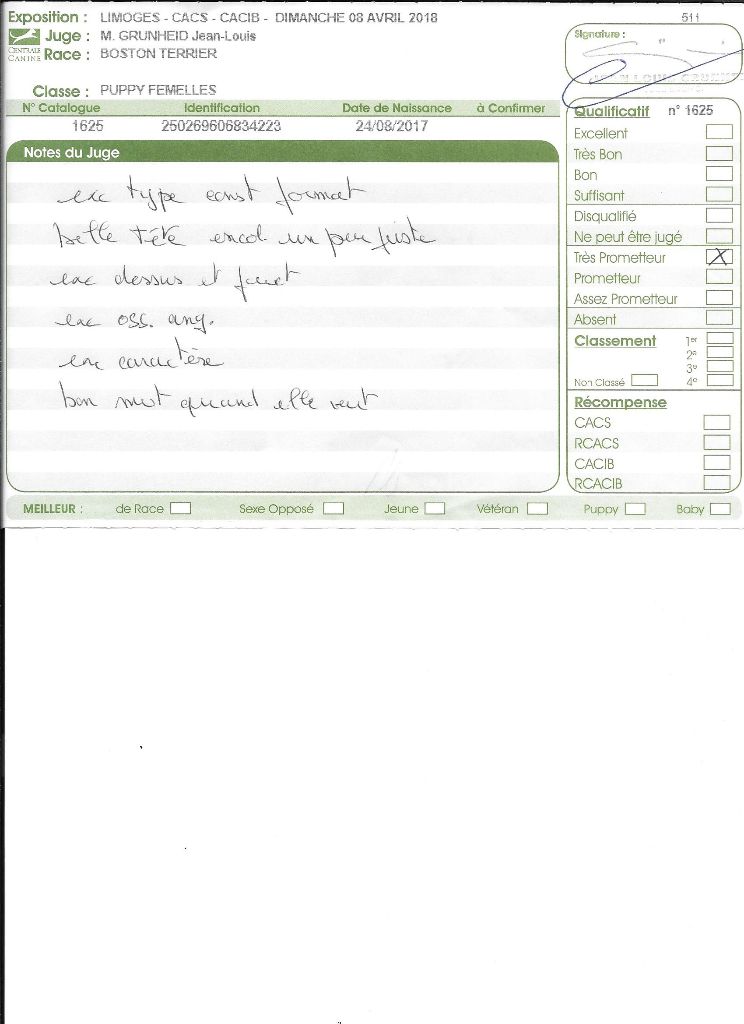 Exposition : LIMOGES - CACS - CACIB - DIMANCHE 08 AVRIL 2018
511
CENTRALE CANINE
Juge : M. GRUNHEID Jean-Louis
Race : BOSTON TERRIER
Signature :
Classe : PUPPY FEMELLES
N° Catalogue Identification Date de Naissance à Confirmer
1625 250269606834223 24/08/2017
Notes du Juge
exc type const format
belle tête encol un peu juste
exc dessus et fouet
exc oss. ang.
exc caractère
bon mvt quand elle veut
Qualificatif n° 1625
Excellent
Très Bon
Bon
Suffisant
Disqualifié
Ne peut être jugé
Très Prometteur X
Prometteur
Assez Prometteur
Absent
Classement 1er
2e
3e
Non Classé 4e
Récompense
CACS
RCACS
CACIB
RCACIB
MEILLEUR : de Race Sexe Opposé Jeune Vétéran Puppy Baby